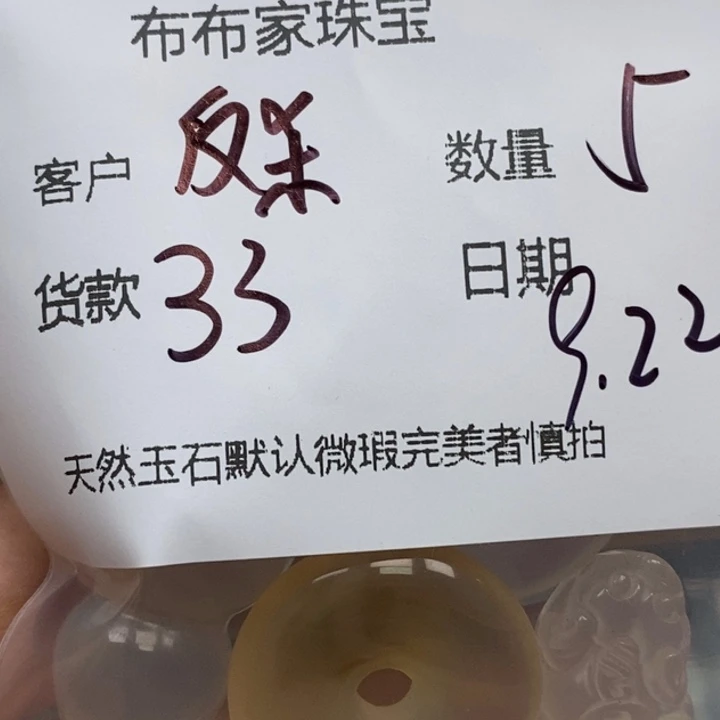 布布家珠宝
客户 数量 5
货款 33 日期 9.22
天然玉石默认微瑕完美者慎拍